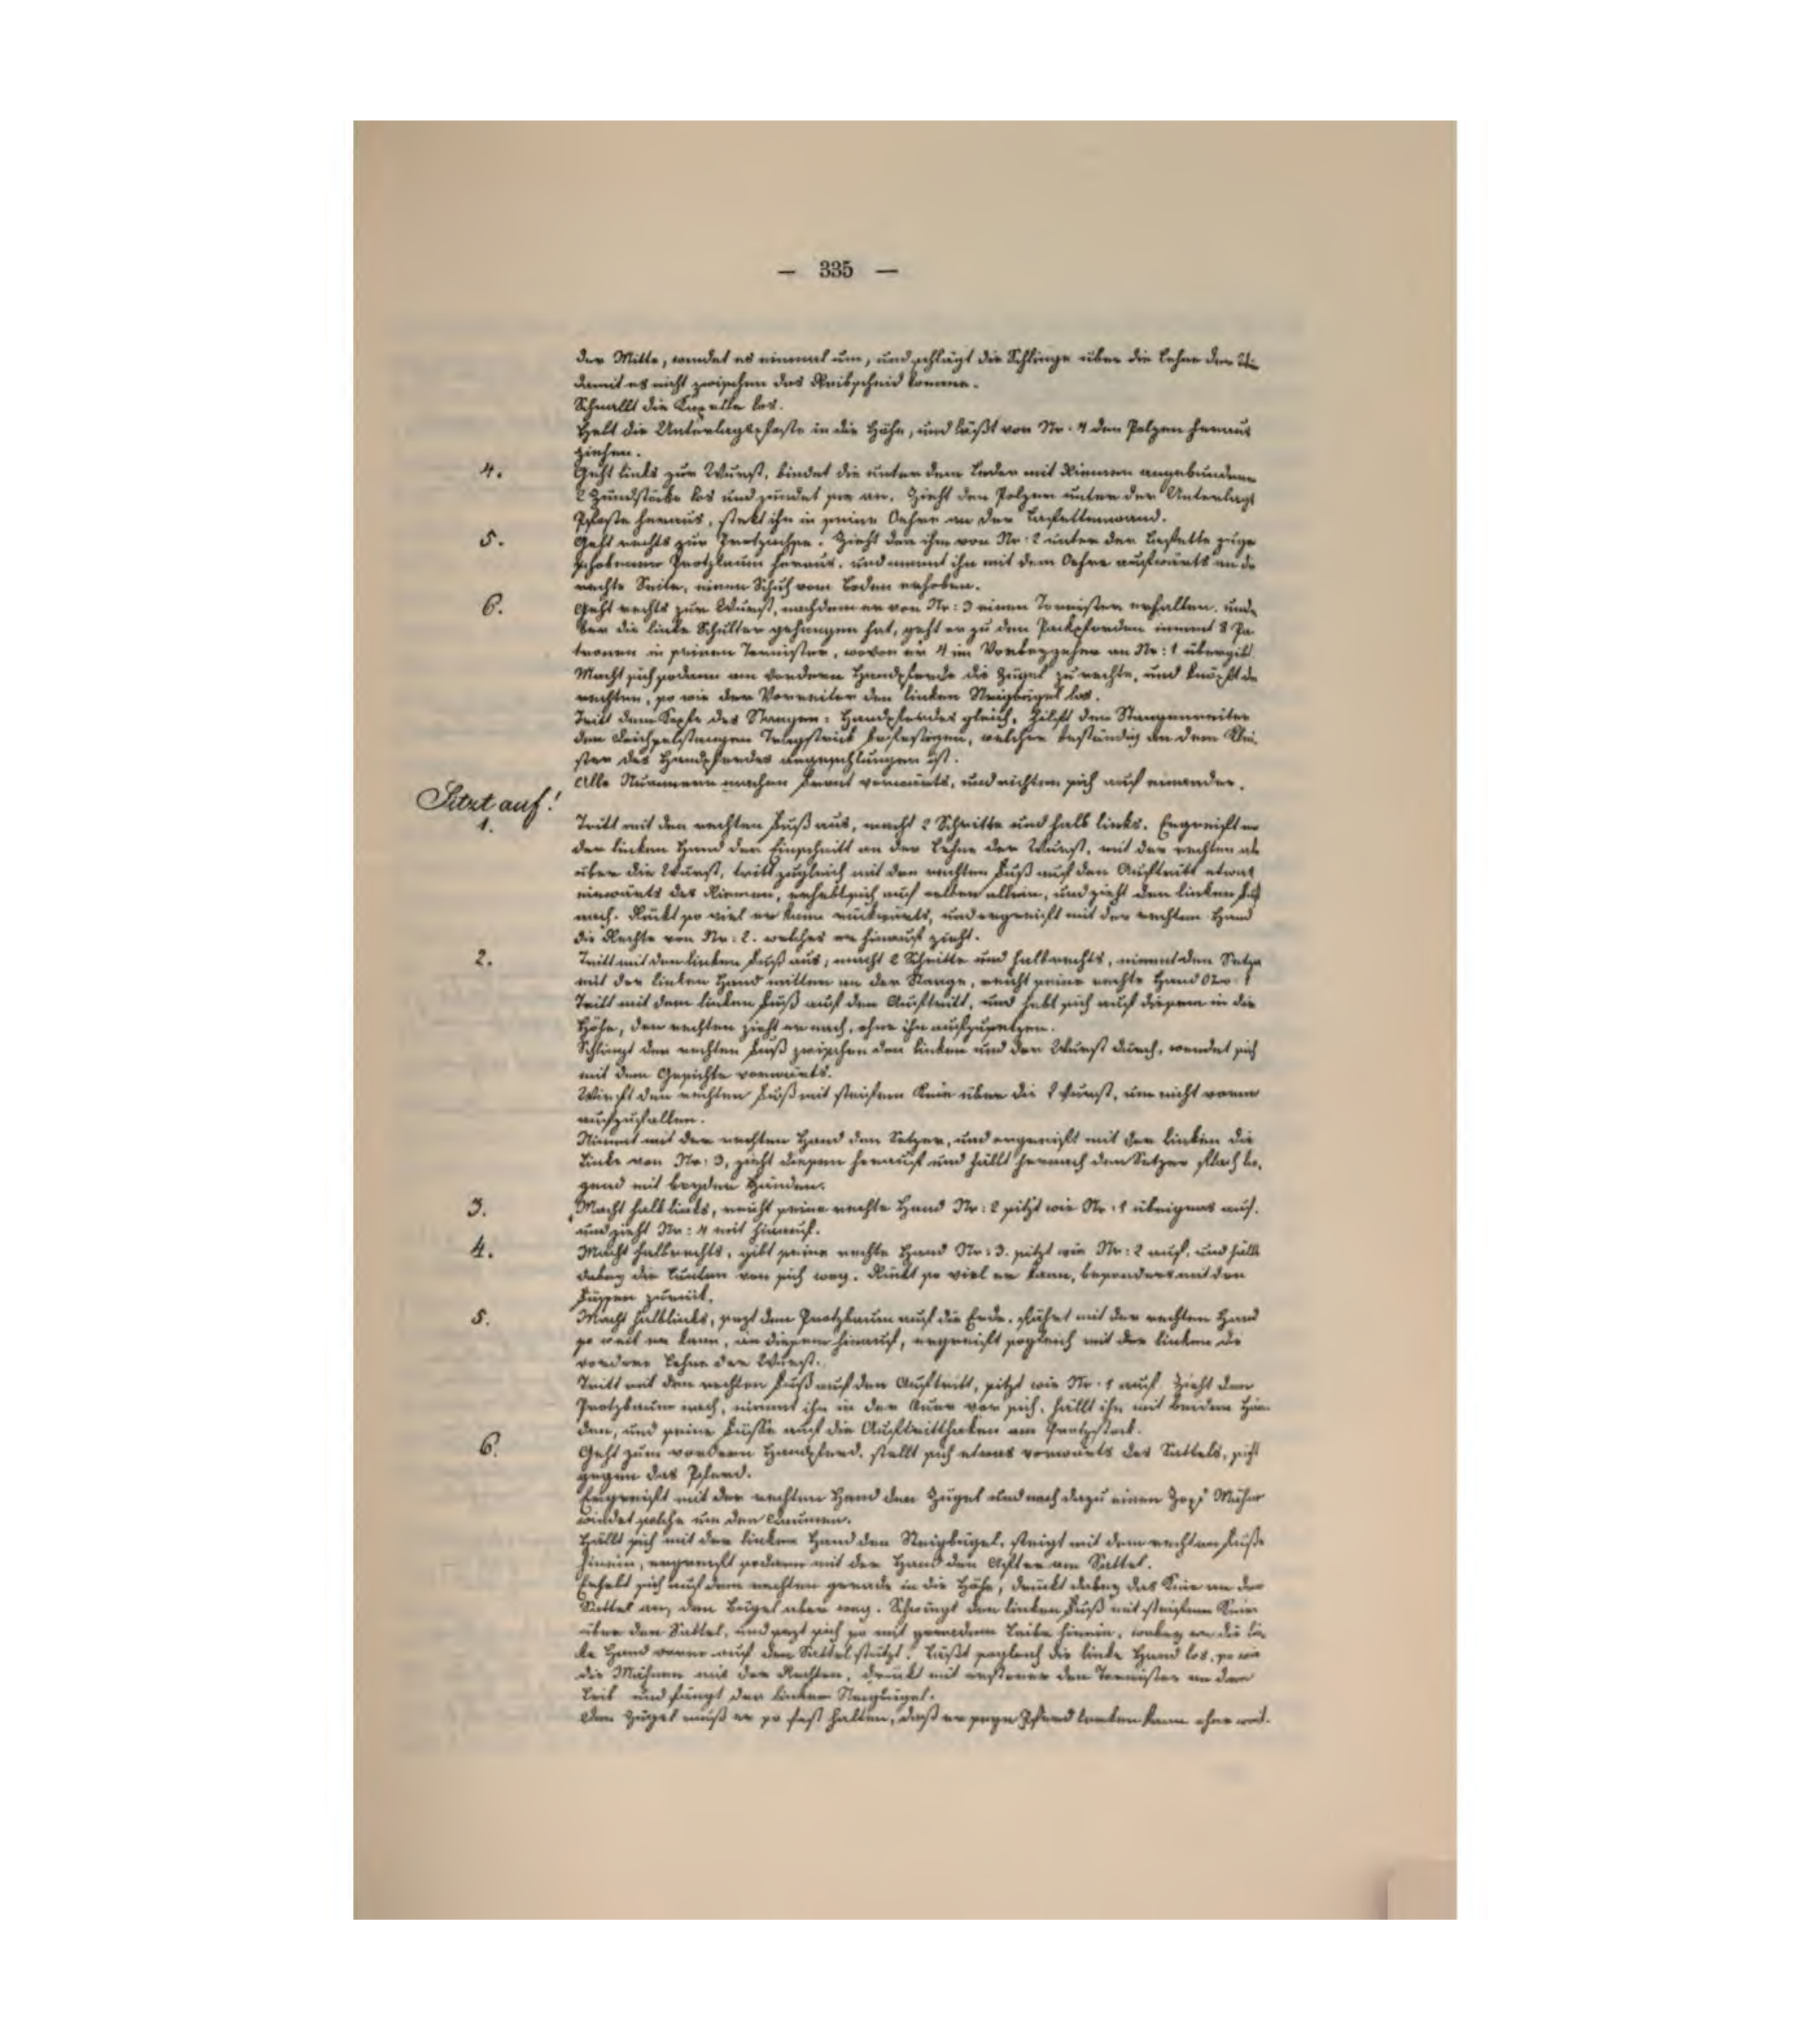 — 335 —
der Mitte, wendet es einmal um, und schlägt die Schlinge über die Lehne der
damit es nicht zwischen das Reibscheid komme.
Schnallt die Kapelle los.
Hebt die Unterlagspfoste in die Höhe, und läßt von Nr. 4 den Polzen heraus
ziehen.
4. Geht links zur Wurst, bindet die unter dem Leder mit Riemen angebundene
2 Zündstöcke los und zündet sie an. Zieht den Polzen unter der Unterlags
Pfoste heraus, stekt ihn in seine Oehre an der Laffettenwand.
5. Geht rechts zur Protzachse. Zieht den ihm von Nr: 2 unter der Laffette zuge
schobenen Protzbaum heraus, und nimmt ihn mit dem Oehre aufwärts an de
rechte Seite, einen Schuh vom Boden erhoben.
6. Geht rechts zur Wurst, nachdem er von Nr: 3 einen Tornister erhalten, und
ber die linke Schulter gehangen hat, geht er zu den Packpferden nimmt 8 Pa
tronen in seinen Tornister, wovon er 4 im Vorbeygehen an Nr: 1 übergibt.
Macht sich sodann am vordern Handpferde die Zügel zu rechte, und knöpft de
rechten, so wie der Vorreiter den linken Steigbügel los.
Tritt dem Kopfe des Stangen: Handpferdes gleich, hilft dem Stangenreiter
den Deichselstangen Tragstrick befestigen, welcher beständig an dem
ster des Handpferdes angeschlungen ist.
Alle Nummern machen Front vorwärts, und richten sich auf einander.
Sitzt auf!
1. Tritt mit den rechten Fuß aus, macht 2 Schritte und halb links. Ergreift m
der linken Hand den Einschnitt an der Lehne der Wurst, mit der rechten ab
über die Wurst, tritt zugleich mit den rechten Fuß auf den Auftritt etwas
einwärts des Riemen, erhebt sich auf selben allein, und zieht den linken Fuß
nach. Rückt so viel er kann rückwärts, und ergreift mit der rechten Hand
die Rechte von Nr: 2. welches er hinauf zieht.
2. Tritt mit den linken Fuß aus, macht 2 Schritte und halbrechts, nimmt den Setze
mit der linken Hand mitten an der Stange, reicht seine rechte Hand Nro: 1
Tritt mit dem linken Fuß auf den Auftritt, und hebt sich auf diesem in die
Höhe, den rechten zieht er nach, ohne ihn aufzusetzen.
Schlingt den rechten Fuß zwischen den linken und der Wurst durch, wendet sich
mit dem Gesichte vorwärts.
Wirft den rechten Fuß mit steifem Knie über die Wurst, um nicht vorne
aufzufallen.
Nimmt mit der rechten Hand den Setzer, und ergreift mit der linken die
Linke von Nr: 3, zieht diesen herauf und hällt hernach den Setzer flach lie,
gend mit beyden Händen.
3. Macht halb links, reicht seine rechte Hand Nr: 2 sitzt wie Nr: 1 übrigens auf,
und zieht Nr: 4 mit hinauf.
4. Macht halbrechts, gibt seine rechte Hand Nr: 3. sitzt wie Nr: 2 auf, und hällt
dabey die Lunten von sich weg. Rückt so viel er kann, besonders mit den
Füssen zurück.
5. Macht halblinks, sezt den Protzbaum auf die Erde, fährt mit der rechten Hand
so weit er kann, an diesem hinauf, ergreift sogleich mit der linken die
vordere Lehne der Wurst.
Tritt mit dem rechten Fuß auf den Auftritt, sitzt wie Nr. 1 auf. Zieht den
Protzbaum nach, nimmt ihn in der Quer vor sich, hällt ihn mit beiden Hän
den, und seine Füsse auf die Auftritthaken am Protzstock.
6. Geht zum vordern Handpferd, stellt sich etwas vorwärts des Sattels, sicht
gegen das Pferd.
Ergreift mit der rechten Hand den Zügel und noch dazu einen Zopf Mähne
windet solche um den Daumen.
Hällt sich mit der linken Hand den Steigbügel, steigt mit dem rechten Fuße
hinein, ergreift sodann mit der Hand den After am Sattel.
Erhebt sich auf dem rechten gerade in die Höhe, drückt dabey das Knie an den
Sattel an, den Bügel aber weg. Schwingt den linken Fuß mit steifem Knie
über den Sattel, und sezt sich so mit geradem Leibe hinein, wobey er die lin
ke Hand vorne auf den Sattel stützt. Läßt sogleich die linke Hand los, so wie
die Mähnen mit der Rechten, drückt mit ersterer den Tornister an den
Leib und fängt den linken Steigbügel.
Den Zügel muß er so fest halten, daß er sein Pferd lenken kann ohne mit.